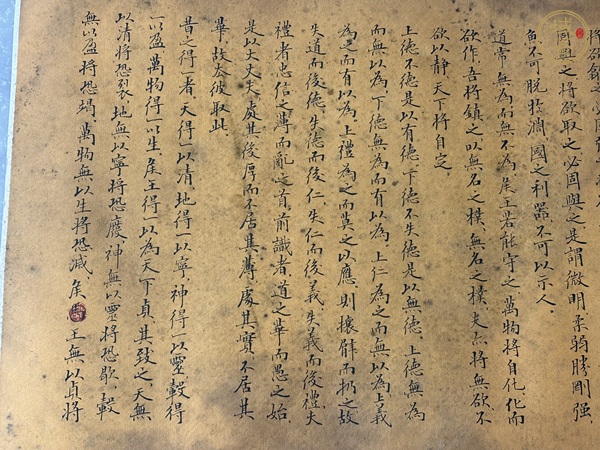 將欲
固興之將欲取之必固與之是謂微明柔弱勝剛強
魚不可脫於淵國之利器不可以示人
道常無為而無不為矦王若能守之萬物將自化化而
欲作吾將鎮之以無名之樸無名之樸夫亦將無欲不
欲以靜天下將自定
上德不德是以有德下德不失德是以無德上德無為
而無以為下德無為而有以為上仁為之而無以為上義
為之而有以為上禮為之而莫之以應則攘臂而扔之故
失道而後德失德而後仁失仁而後義失義而後禮夫
禮者忠信之薄而亂之首前識者道之華而愚之始
是以大丈夫處其後厚而不居其薄處其實不居其
華故去彼取此
昔之得一者天得一以清地得一以寧神得一以靈穀得
一以盈萬物得一以生矦王得一以為天下貞其致之天無
以清將恐裂地無以寧將恐廢神無以靈將恐歇穀
無以盈將恐竭萬物無以生將恐滅矦王無以貞將